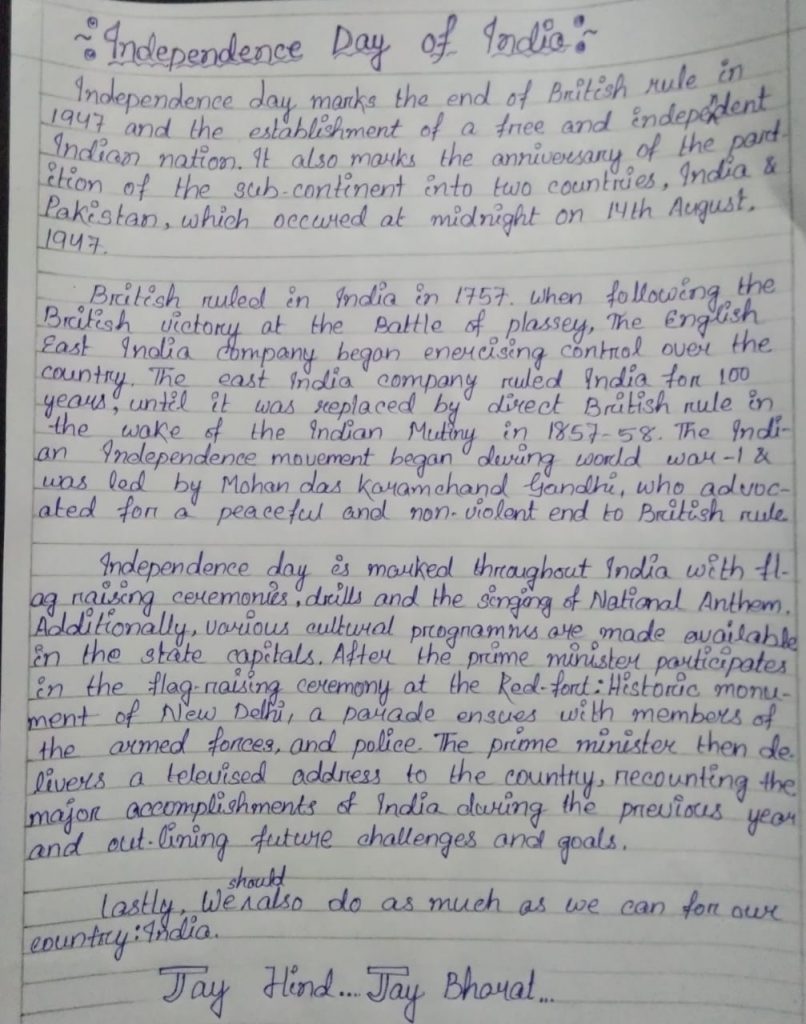 Independence Day of India
Independence day marks the end of British rule in
1947 and the establishment of a free and independent
Indian nation. It also marks the anniversary of the part-
ition of the sub-continent into two countries, India &
Pakistan, which occured at midnight on 14th August,
1947.
British ruled in India in 1757. When following the
British victory at the Battle of plassey, The English
East India company began enercising control over the
country. The east India company ruled India for 100
years, until it was replaced by direct British rule in
the wake of the Indian Mutiny in 1857-58. The Indi-
an Independence movement began during world war-1 &
was led by Mohan das Karamchand Gandhi, who advoc-
ated for a peaceful and non-violent end to British rule
Independence day is marked throughout India with fl-
ag raising ceremonies, drills and the singing of National Anthem.
Additionally, various cultural programmes are made available
in the state capitals. After the prime minister participates
in the flag-raising ceremony at the Red-fort: Historic monu-
ment of New Delhi, a parade ensues with members of
the armed forces, and police. The prime minister then de-
livers a televised address to the country, recounting the
major accomplishments of India during the previous year
and out-lining future challenges and goals.
Lastly, We should also do as much as we can for our
country: India.
Jay Hind... Jay Bharat...